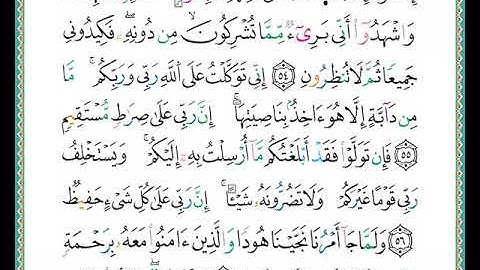 وَاشْهَدُوا أَنِّي بَرِيءٌ مِّمَّا تُشْرِكُونَ مِن دُونِهِ ۖ فَكِيدُونِي
جَمِيعًا ثُمَّ لَا تُنظِرُونِ ٥٤ إِنِّي تَوَكَّلْتُ عَلَى اللَّهِ رَبِّي وَرَبِّكُم ۚ مَّا
مِن دَابَّةٍ إِلَّا هُوَ ءَاخِذٌ بِنَاصِيَتِهَا ۚ إِنَّ رَبِّي عَلَى صِرَٰطٍ مُّسْتَقِيمٍ
٥٥ فَإِن تَوَلَّوْا فَقَدْ أَبْلَغْتُكُم مَّا أُرْسِلْتُ بِهِ إِلَيْكُمْ ۚ وَيَسْتَخْلِفُ
رَبِّي قَوْمًا غَيْرَكُمْ وَلَا تَضُرُّونَهُ شَيْئًا ۚ إِنَّ رَبِّي عَلَى كُلِّ شَيْءٍ حَفِيظٌ
٥٦ وَلَمَّا جَاءَ أَمْرُنَا نَجَّيْنَا هُودًا وَالَّذِينَ ءَامَنُوا مَعَهُ بِرَحْمَةٍ